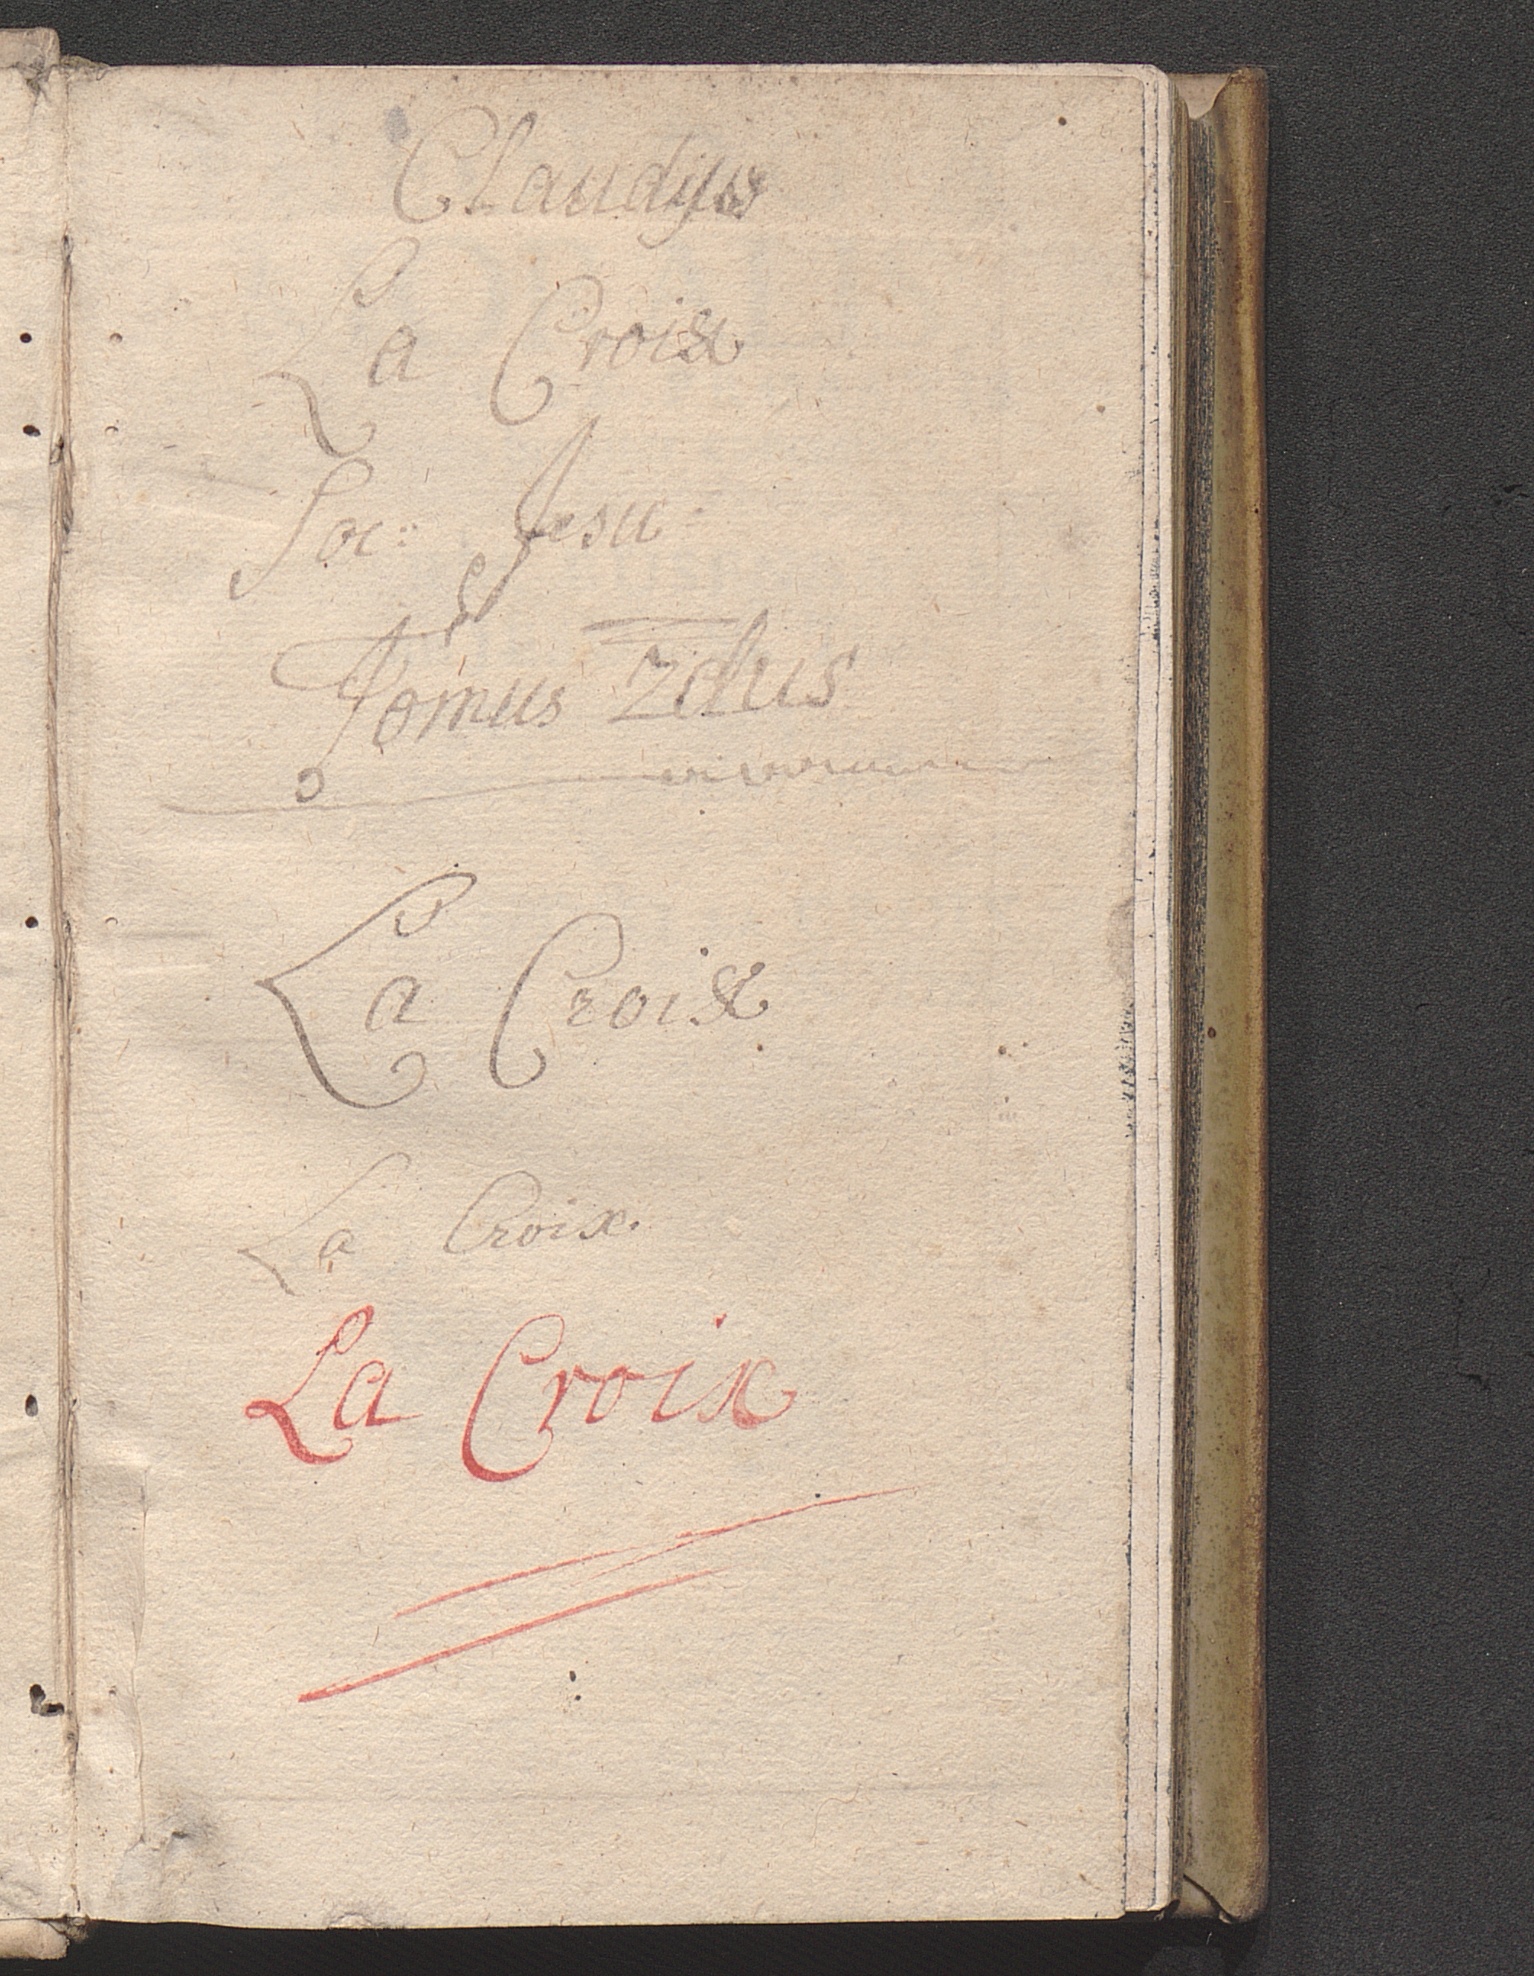 Claudyus
La Croix
Soc: Jesu
Tomus 2dus
La Croix
La Croix.
La Croix